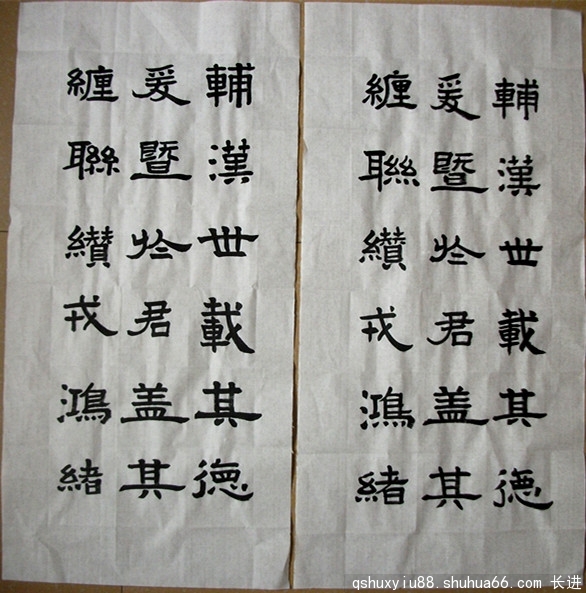 輔漢世載其德
爰暨於君盖其
纏聯纘戎鴻緒
輔漢世載其德
爰暨於君盖其
纏聯纘戎鴻緒
qshuxyiu88.shuhua66.com 长进